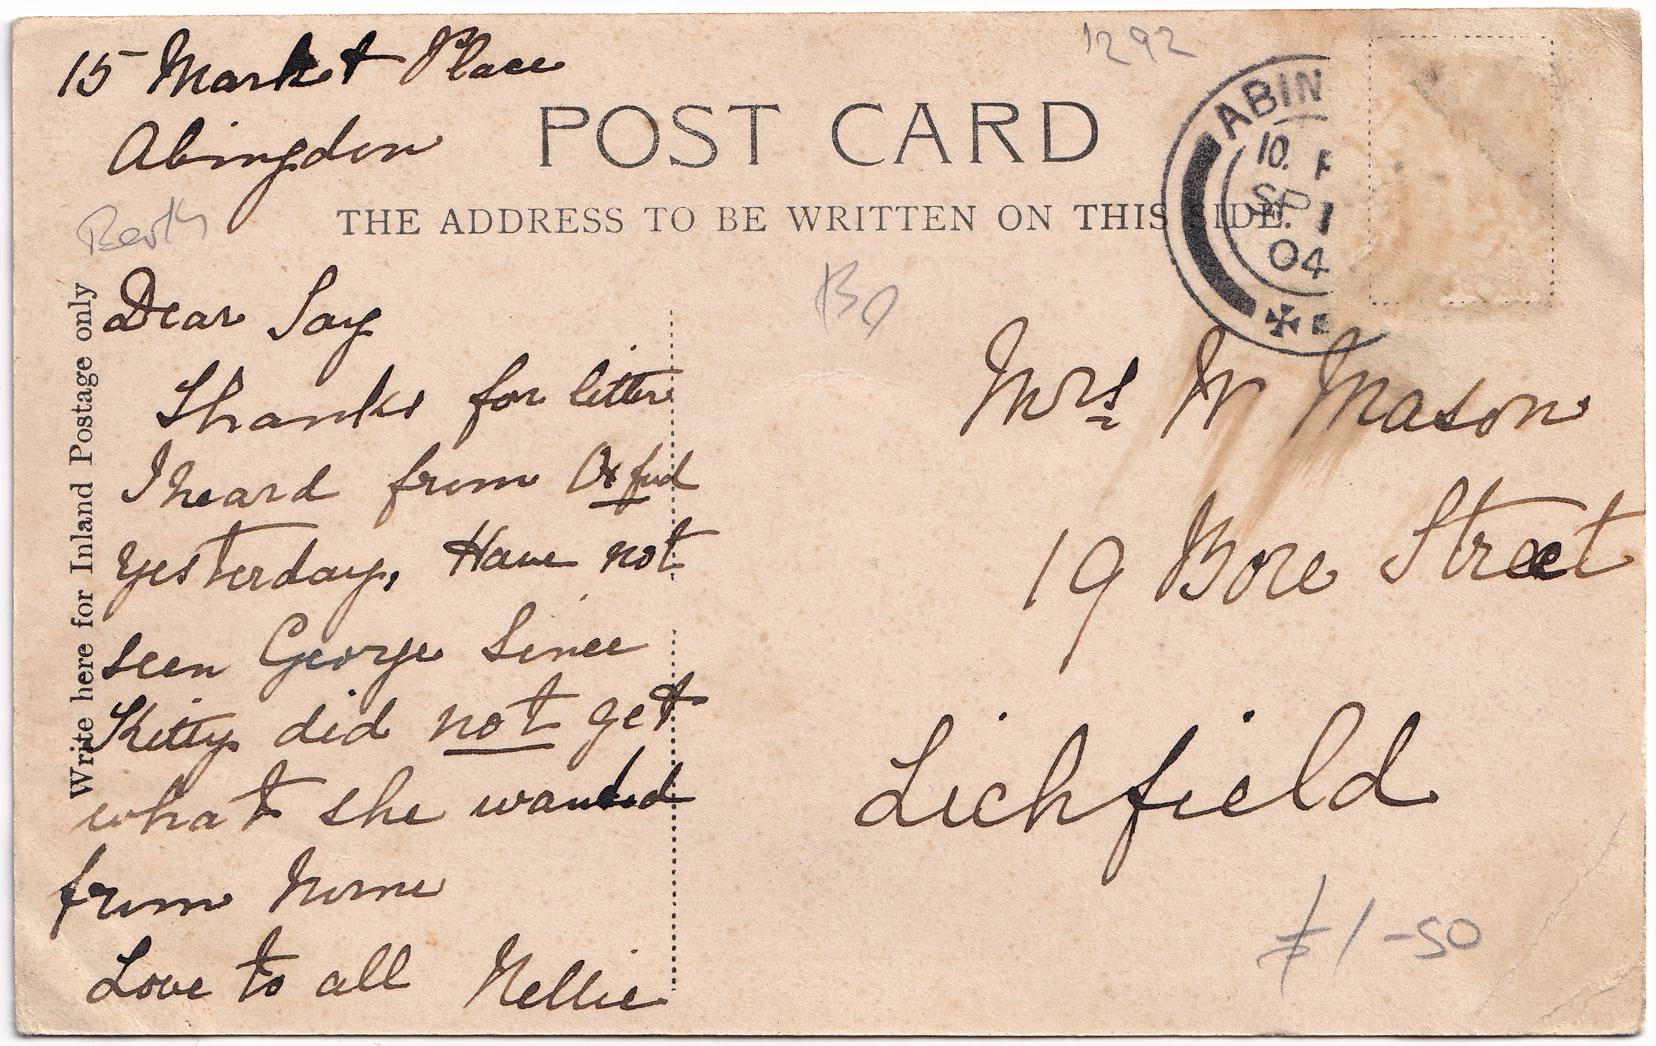 1292
15 Market Place
Abingdon
POST CARD
THE ADDRESS TO BE WRITTEN ON THIS SIDE.
ABIN
10. P
SP 1
04
Write here for Inland Postage only
Dear Say
Thanks for letter
I heard from Oxford
yesterday, Have not
seen George Since
Kitty did not get
what she wanted
from
Love to all Nellie
Mrs W Mason
19 Bore Street
Lichfield
£1-50